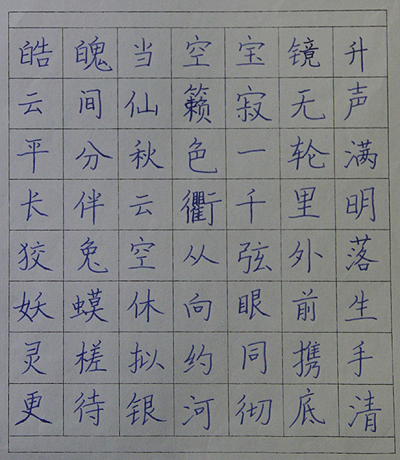 皓魄当空宝镜升
云间仙籁寂无声
平分秋色一轮满
长伴云衢千里明
狡兔空从弦外落
妖蟆休向眼前生
灵槎拟约同携手
更待银河彻底清